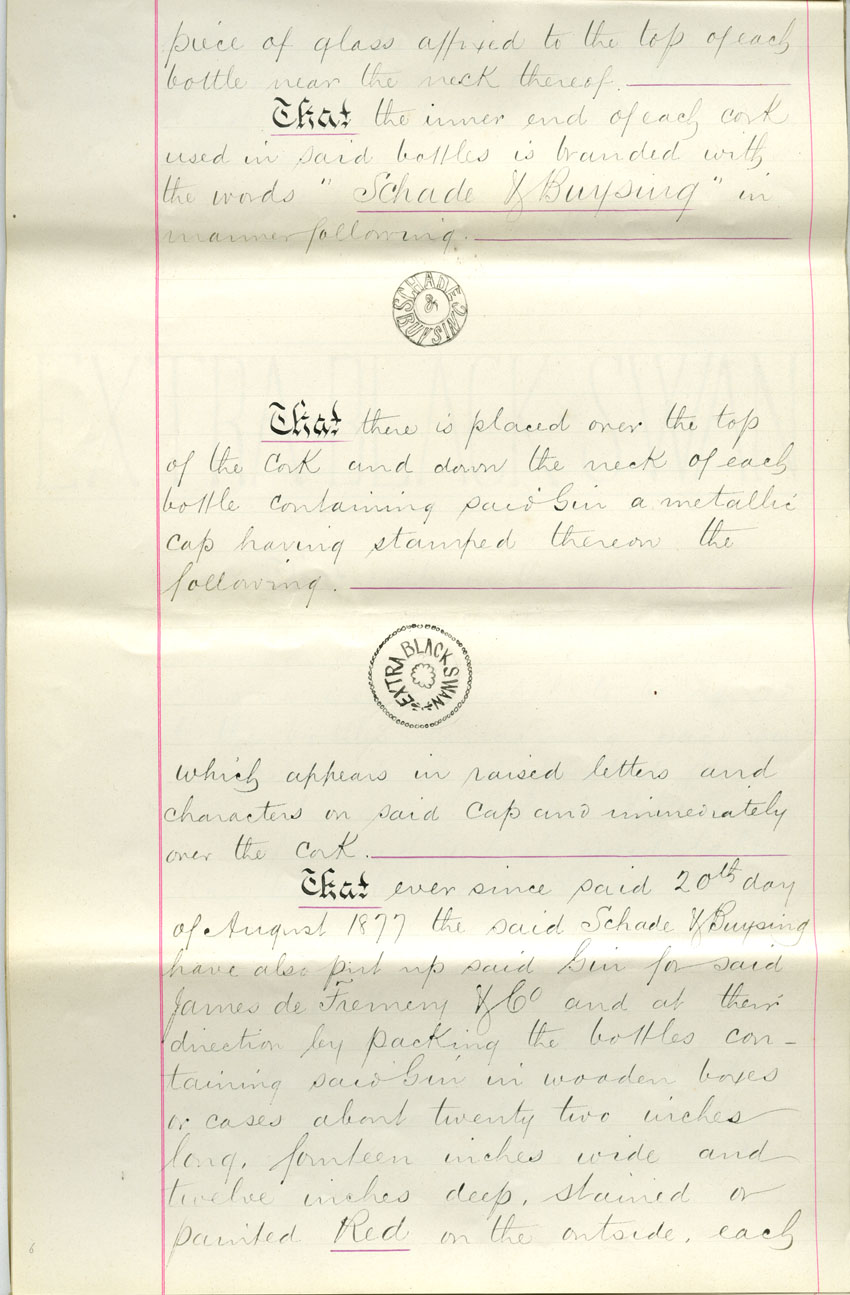 piece of glass affixed to the top of each
bottle near the neck thereof.
That the inner end of each cork
used in said bottles is branded with
the words " Schade & Buysing " in
manner following.
SCHADE & BUYSING
That there is placed over the top
of the Cork and down the neck of each
bottle containing said Gin a metallic
cap having stamped thereon the
following.
EXTRA BLACK SWAN
which appears in raised letters and
characters on said Cap and immediately
over the Cork.
That ever since said 20th day
of August 1877 the said Schade & Buysing
have also put up said Gin for said
James de Fremery & Co and at their
direction by packing the bottles con-
taining said Gin in wooden boxes
or cases about twenty two inches
long, fourteen inches wide and
twelve inches deep, stained or
painted Red on the outside, each
6